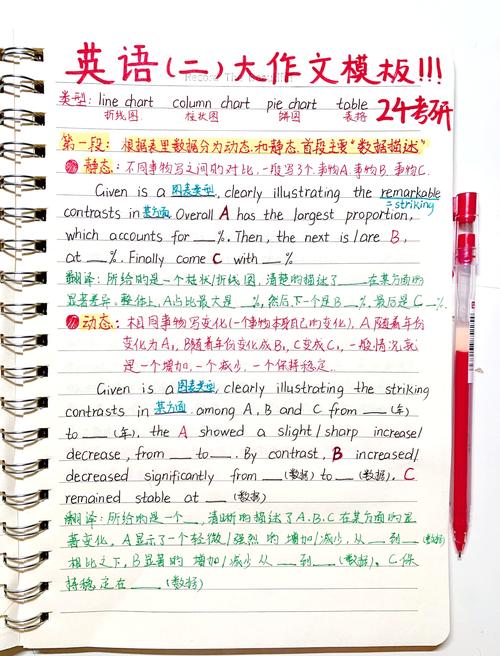 英语(二)大作文模板!!!
类型: line chart column chart pie chart table 24考研
折线图 柱状图 饼图 表格
第一段: 根据表里数据分为动态和静态.首段主要"数据描述"
① 静态: 不同事物写之间的对比.一般写3个.事物A.事物B.事物C.
Given is a 图表类型, clearly illustrating the remarkable
=striking
contrasts in 某方面 Overall A has the largest proportion,
which accounts for __%. Then, the next is/are B,
at __%. Finally come C with __%
翻译: 所给的是一个柱状/折线图.清楚的描述了____在某方面的
显著差异.整体上.A占比最大是__%,然后下一个是B__%.最后是C__%.
② 动态: 相同事物写变化(一个事物本身自己的变化), A随着年份
变化为A₁, B随着年份变化成B₁, C变成C₁, 一般情况就
是一个增加,一个减少,一个保持稳定.
Given is a 图表类型, clearly illustrating the striking
contrasts in 某方面 among A, B and C from ___(年)
to ___(年), the A showed a slight/sharp increase/
decrease, from ___ to ___. By contrast, B increased/
decreased significantly from ___(数据) to ___(数据). C
remained stable at ___(数据)
翻译: 所给的是一个___,清晰的描述了A.B.C在某方面的显
著变化, A显示了一个轻微/强烈的增加/减少,从___到___(数据)
相比之下,B显著的增加/减少从___到___(数据). C保
持稳定在____(数据)